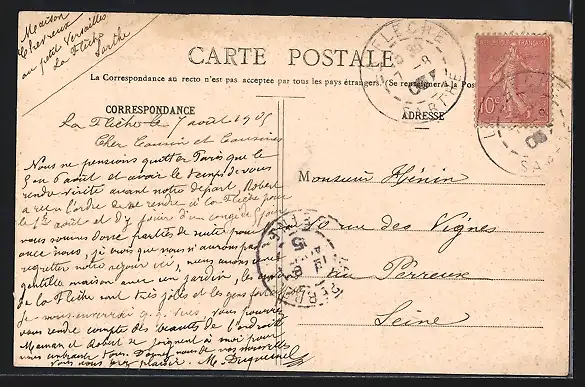 Maison
Chevreux
au petit Versailles
La Flèche
Sarthe
CARTE POSTALE
La Correspondance au recto n'est pas acceptée par tous les pays étrangers. (Se renseigner à la Pos
CORRESPONDANCE
ADRESSE
RÉPUBLIQUE FRANÇAISE
10c
LA FLECHE
SARTHE
La Flèche le 7 août 1905
Cher Cousin et Cousines
Nous ne pensions quitter Paris que le
5 ou 6 août et avoir le temps de vous
rendre visite avant notre départ, Robert
a reçu l'ordre de se rendre à la Flèche pour
le 1er août et d'y jouir d'un congé
nous sommes donc partis de suite pour
nous, je vois que nous n'aurons pas
regretter notre séjour ici, nous avons une
gentille maison avec un jardin, les
de la Flèche sont très jolis et les gens
Je vous enverrai q.q. vues vous pourrez
vous rendre compte des beautés de l'endroit
Maman et Robert se joignent à moi pour
vous embrasser tous. Donnez nous de vos nouvelles
vous nous ferez plaisir. M.
Monsieur Hénin
rue des Vignes
Perreux
Seine